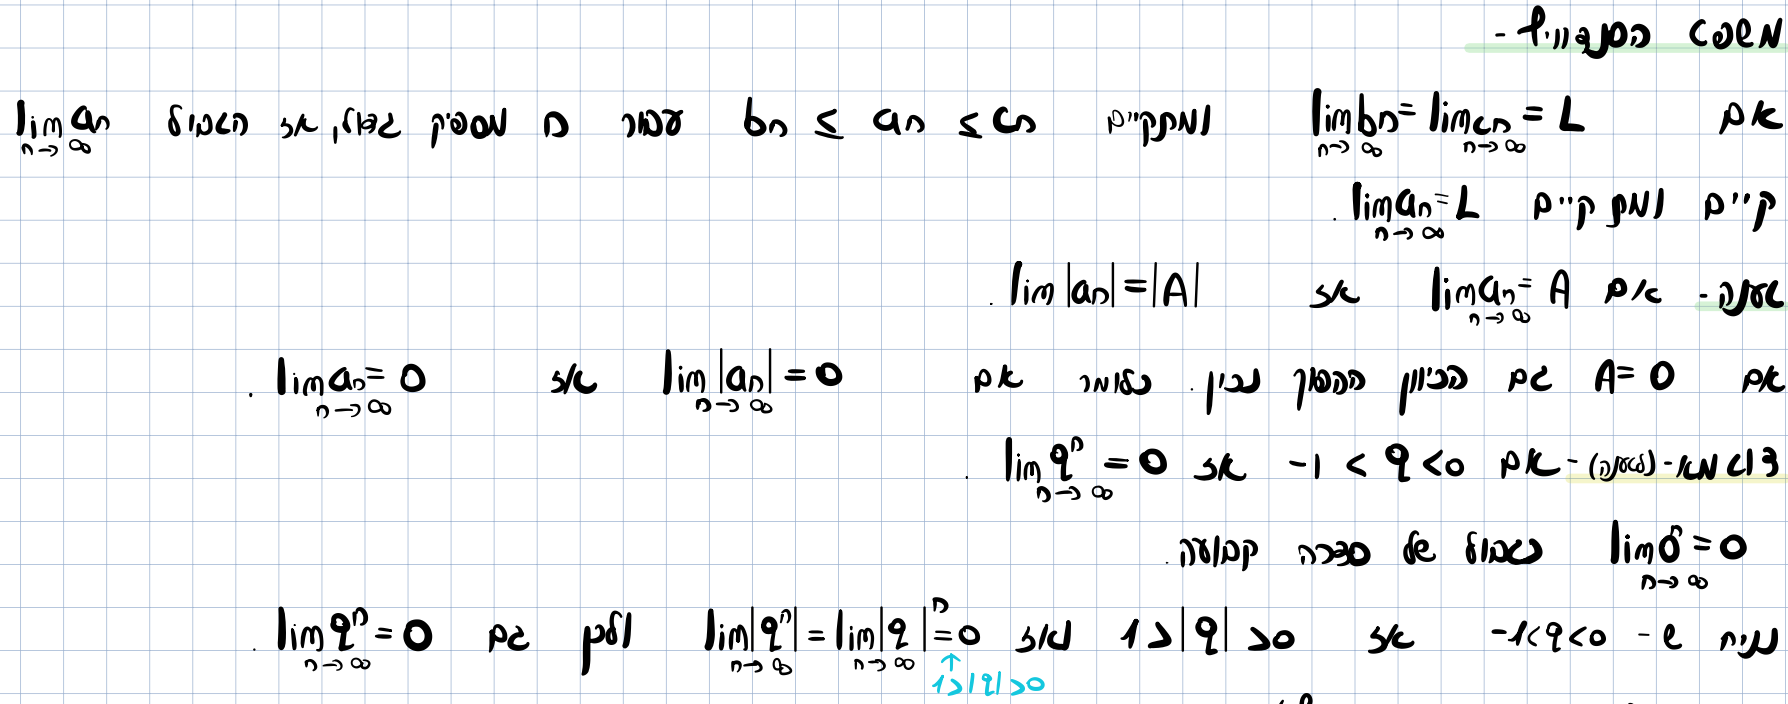 משפט הסנדוויץ' -
אם lim bn = lim cn = L ומתקיים bn ≤ an ≤ cn עבור n מספיק גדול, אז הגבול lim an
n→∞ n→∞ n→∞
קיים ומתקיים lim an = L.
n→∞
טענה - אם lim an = A אז lim |an| = |A|.
n→∞
אם A = 0 גם הכיוון ההפוך נכון. כלומר אם lim |an| = 0 אז lim an = 0.
n→∞ n→∞
דוגמא - (לטענה) - אם -1 < q < 0 אז lim qⁿ = 0.
n→∞
lim 0ⁿ = 0 כגבול של סדרה קבועה.
n→∞
נניח ש - -1<q<0 אז 1>|q|>0 ואז lim |qⁿ| = lim |q|ⁿ = 0 ולכן גם lim qⁿ = 0.
n→∞ n→∞ ↑ n→∞
1>|q|>0